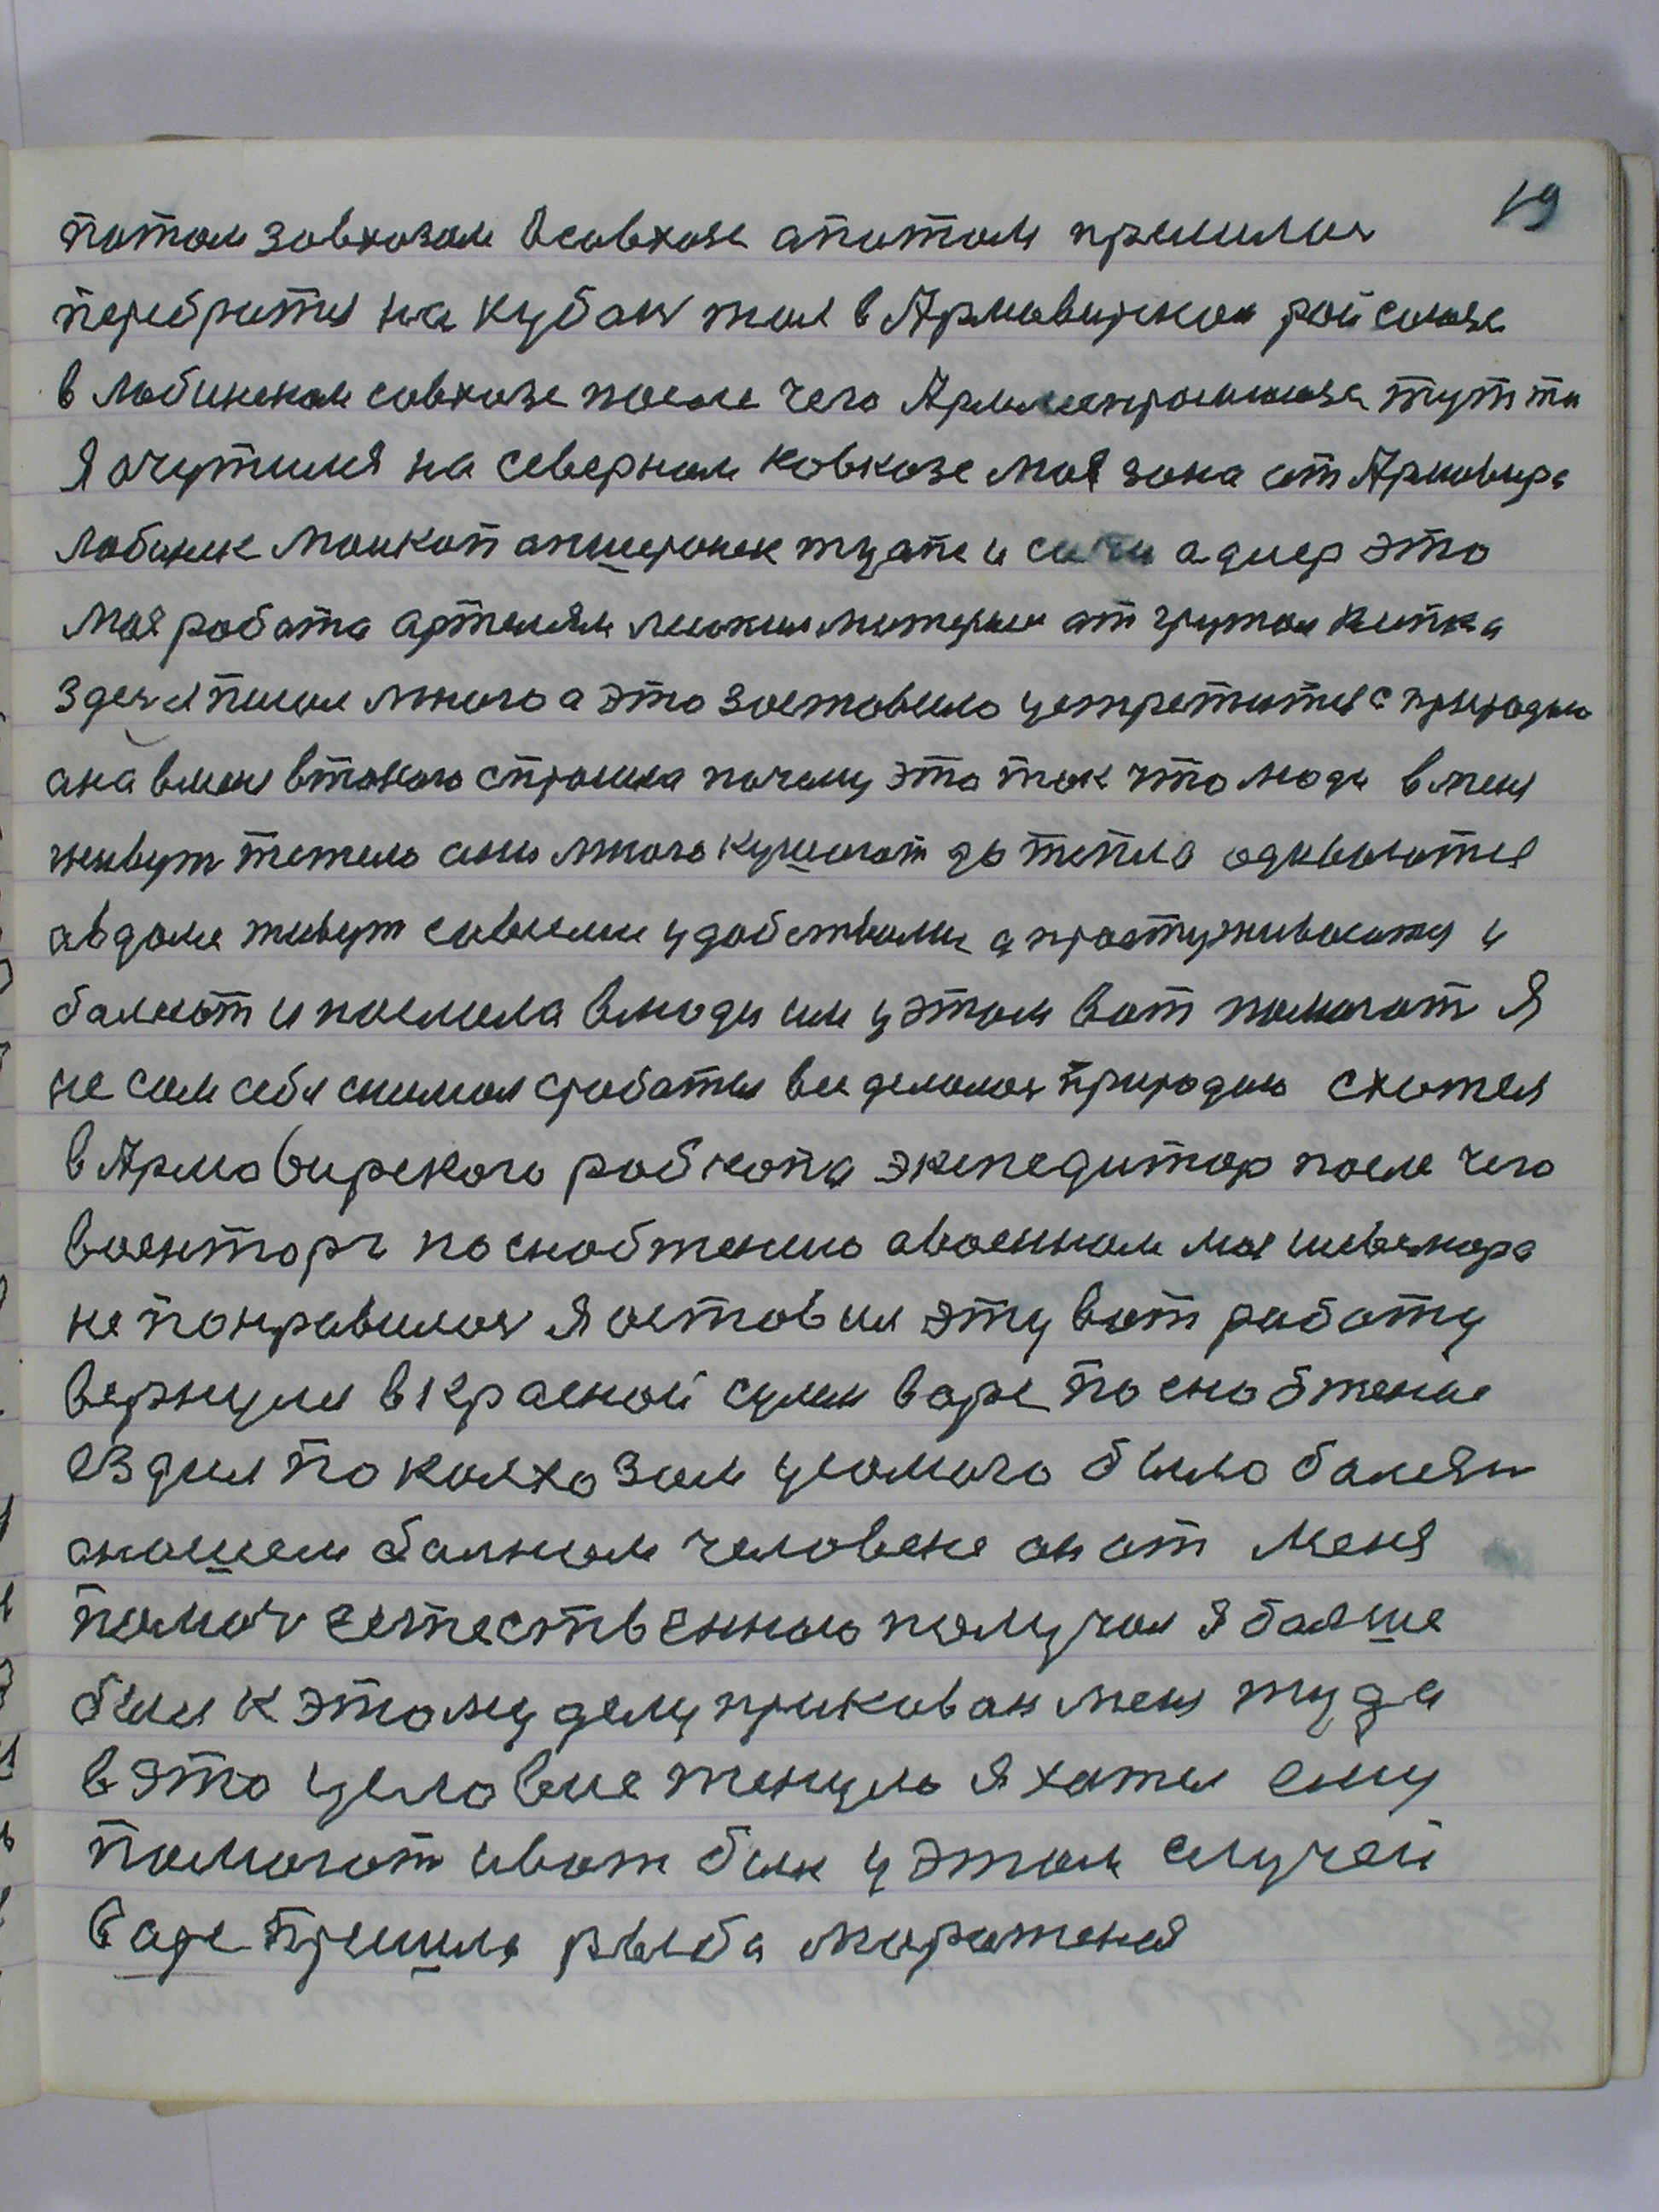 19
потом зовхозом всовхозе апотом пришлося
перебратся на кубань там в Армовирском ройсоюзе
в лабинском совхозе после чего тутто
Я очутился на северном ковкозе моя зона от Армовира
лабинск моикоп апшеронск туапсе и сочи адлер это
моя робота артелям
здеся писал много а это зостовило устретится с природаю
ана вменя втакого спросила почему это так что люди вменя
живут тяжело ани много кушоют до тепла одяваются
авдоме живут совсеми удобствами а простуживаются и
балеют и послала влюди им у этом вот помогат Я
не сам себя снимал сработы все делалося природаю схотел
в Армовирского робкопа экспедитор после чего
военторг поснобжению авоенном мая
не понравилося Я оставил эту вот работу
вернулся вкрасной сулин ворс по снобжение
ездил по колхозам усамого было балезн
анашем балном человеке он от меня
помоч естественною получал я больше
был к этому делу прикован меня туда
в это условие тенуло я хател ему
помогат ивот был у этом случаи
ворс пришла рыба мароженая